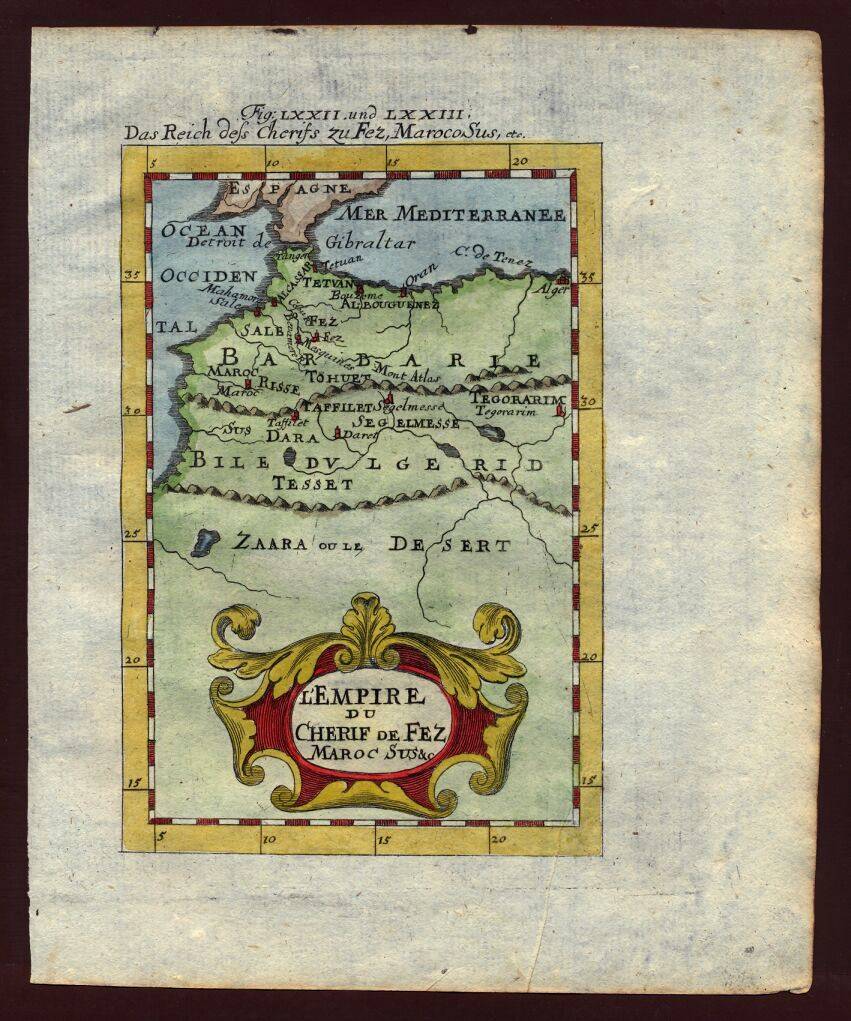 Fig: LXXII. und LXXIII.
Das Reich deſs Cherifs zu Fez, Maroco Sus, etc.
5 10 15 20
ESPAGNE
MER MEDITERRANEE
OCEAN
Detroit de Gibraltar
Tanger
Tetuan
C. de Tenez
OCCIDEN
TAL
35 35
ALCASSAR
TETVAN
Oran
Alger
Mahamor
Sale
Bouzeme
ALBOUGUENEZ
SALE
FEZ
Fez
Mesquines
BARBARIE
MAROC
Maroc
RISSE
TOHUET
Mont Atlas
30 30
TAFFILET
Segelmesse
TEGORARIM
Tegorarim
Taffilet
SUS
DARA
Daret
SEGELMESSE
BILEDVLGERID
TESSET
25 25
ZAARA OU LE DESERT
20 20
L'EMPIRE
DU
CHERIF DE FEZ
MAROC SUS &c
15 15
5 10 15 20